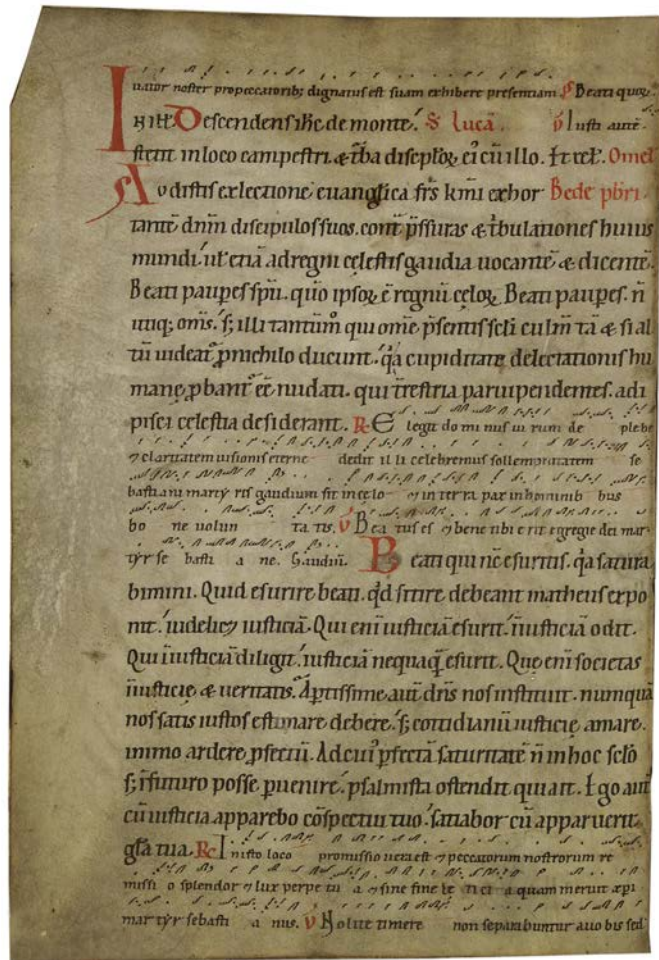 uator noster pro peccatorib; dignatus est suam exhibere presentiam. Ps Beati quoꝝ
In ill̄t Descendens ih̄c de monte. S. lucā. V Iusti autē
stetit in loco campestri. & t̄ba discip̄loꝝ ei᷒ cū illo. Et rel̄. Omel̄
Audistis ex lectione euangl̄ica fr̄s km̄i exhor Bede pb̄ri.
tantē dn̄m discipulos suos. cont̄ p̄ssuras & t̄bulationes huius
mundi. ut̄ etiā ad regni celestis gaudia uocantē & dicentē.
Beati paup̱es sp̄u. quo ipsoꝝ ē regnū celoꝝ. Beati paup̱es. n̄
utiq; om̄s. s; illi tantūm qui ome p̄sentis scl̄i culm tā & si al
tū uideat᷑ p̱ nichilo ducunt. q̄a cupiditate delectationis hu
manę p̱bant᷑ eē nudati. qui t̄restria paruipendentes. adi
pisci celestia desiderant. R̷ Elegit do mi nus ui rum de plebe
& claritatem uisionis eterne dedit il li celebremus sollempnitatem se
bastiani marty ris gaudium sit in celo & in ter ra pax in hominib bus
bo ne uolun ta tis. V Bea tus es & bene tibi e rit egregie dei mar
tẏr se basti a ne. Gaudiū. Beati qui nc̄ esuritis. q̄a satura
bimini. Quid esurire beati. qd̄ sitire debeant matheus expo
nit. uidelic& iusticiā. Qui eni iusticiā esurit. īiusticiā odit.
Qui īiusticiā diligit. iusticiā nequaq̄ esurit. Que eni societas
īiusticię & ueritatis. Aptissime aut̄ dn̄s nos instituit. numquā
nos satis iustos estimare debere. s; cottidianū iusticię amare.
immo ardere p̱fectū. Ad cui᷒ p̱fectā saturitatē n̄ in hoc sclo
s; ī futuro posse p̱uenire. psalmista ostendit qui ait. Ego aut̄
cū iusticia apparebo cōspectui tuo. satiabor cū apparuerit
gl̄a tua. R̷ In isto loco promissio uera est & peccatorum nostrorum re
missi o splendor & lux perpe tu a & sine fine le ti ci a quam meruit xp̄i
mar tẏr sebasti a nus. V Nolite timere non separabuntur a uo bis sed